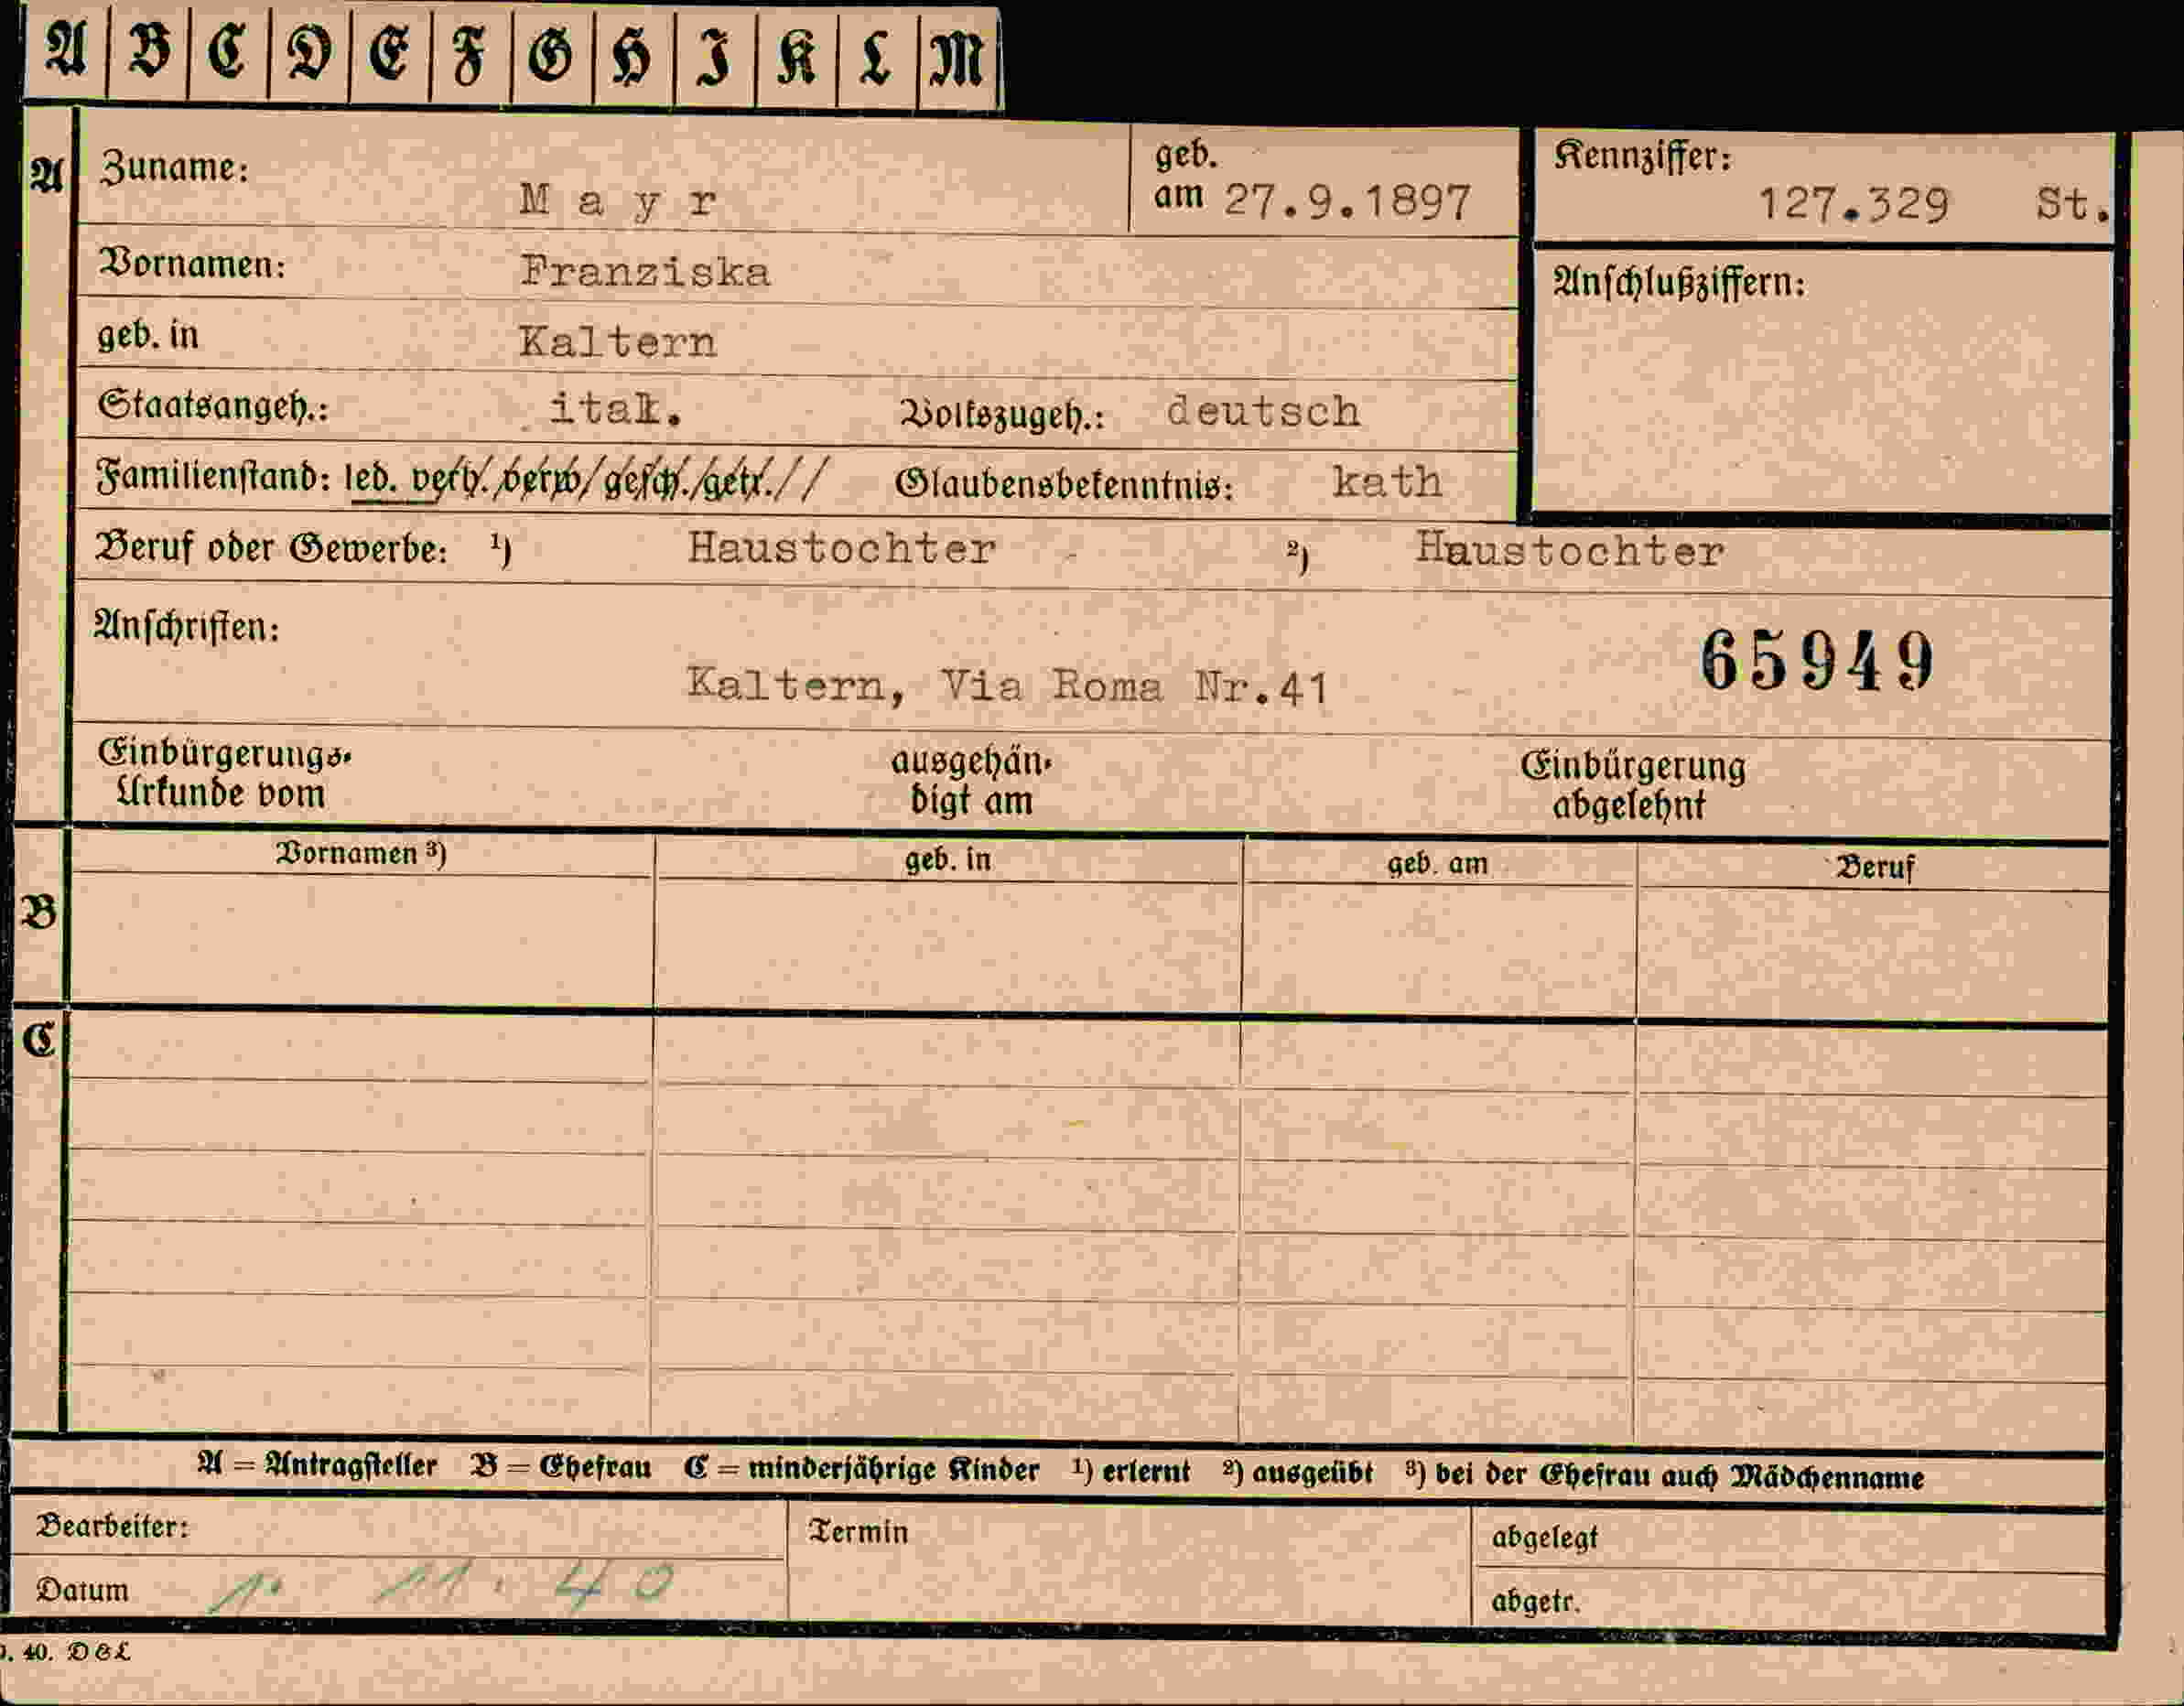 A B C D E F G H I K L M
A Zuname: Mayr geb. am 27.9.1897 Kennziffer: 127.329 St.
Vornamen: Franziska Anschlußziffern:
geb. in Kaltern
Staatsangeh.: ital. Volkszugeh.: deutsch
Familienstand: led. verh. verw. gesch. getr. Glaubensbekenntnis: kath
Beruf oder Gewerbe: ¹) Haustochter ²) Haustochter
Anschriften: 65949
Kaltern, Via Roma Nr.41
Einbürgerungs- ausgehän- Einbürgerung
Urkunde vom digt am abgelehnt
Vornamen ³) geb. in geb. am Beruf
B
C
A = Antragsteller B = Ehefrau C = minderjährige Kinder ¹) erlernt ²) ausgeübt ³) bei der Ehefrau auch Mädchenname
Bearbeiter: Termin abgelegt
Datum 1. 11. 40 abgetr.
40. D&L